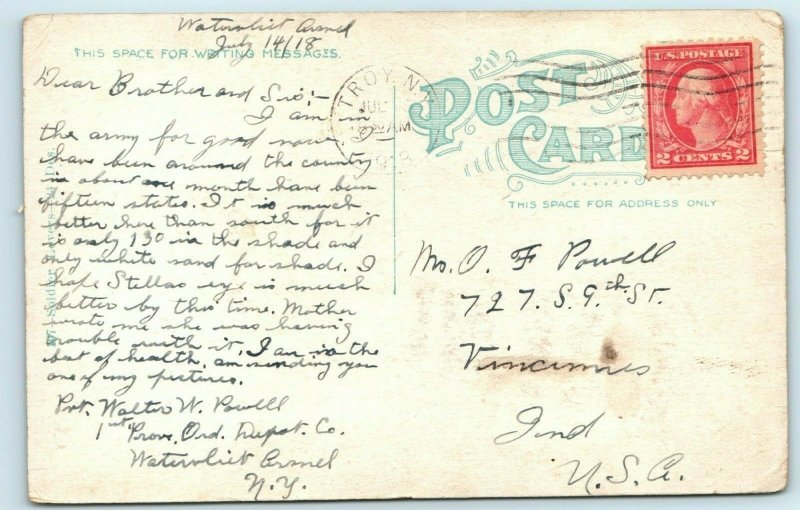 Watervliet Arsnel
July 14/18
THIS SPACE FOR WRITING MESSAGES.
Dear Brother and Sis;-
I am in
the army for good now
have been around the country
in about one month have been
fifteen states. It is much
better here than south for it
is only 130 in the shade and
only white sand for shade. I
hope Stellas eye is much
better by this time. Mother
wrote me she was having
trouble with it. I am in the
best of health, am sending you
one of my pictures.
Pvt. Walter W. Powell
1st Prov. Ord. Depot. Co.
Watervliet Arsnel
N.Y.
TROY, N.Y.
JUL
AM
1918
POST CARD
U.S. POSTAGE
2 CENTS 2
THIS SPACE FOR ADDRESS ONLY
O. F Powell
727. S. 9th St.
Vincinnes
Ind
U.S.A.